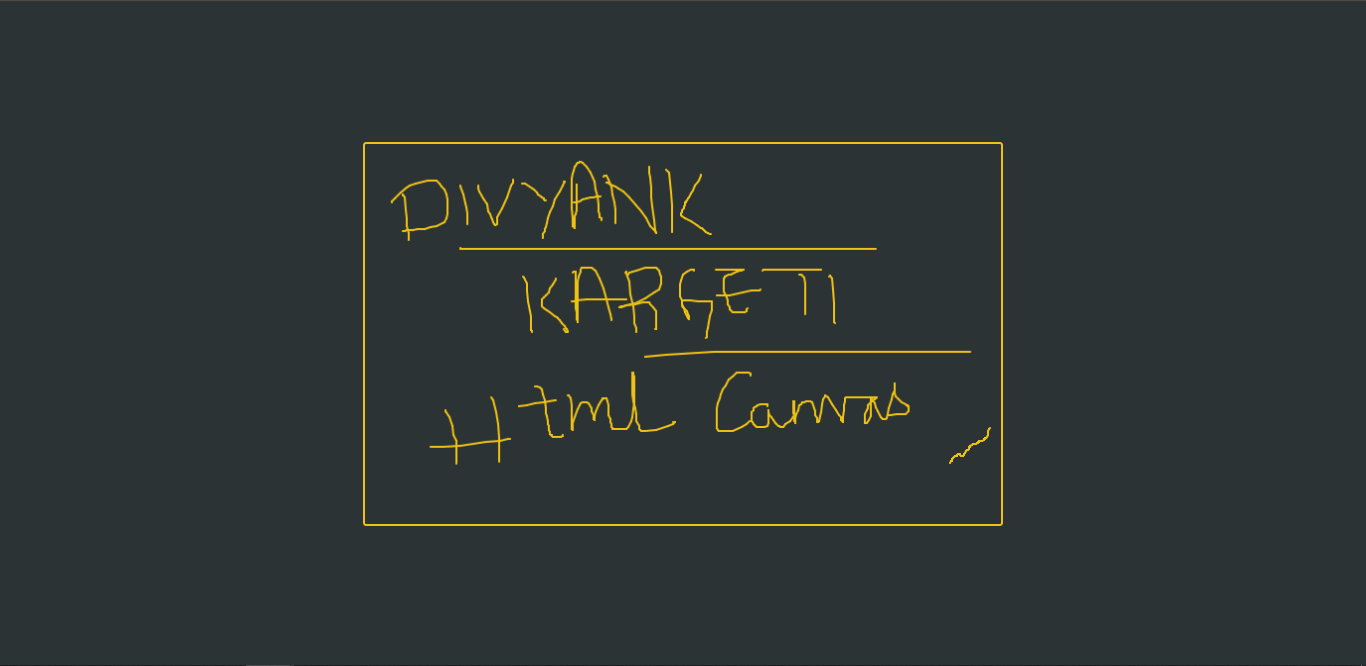 DIVYANK
KARGETI
Html Canvas